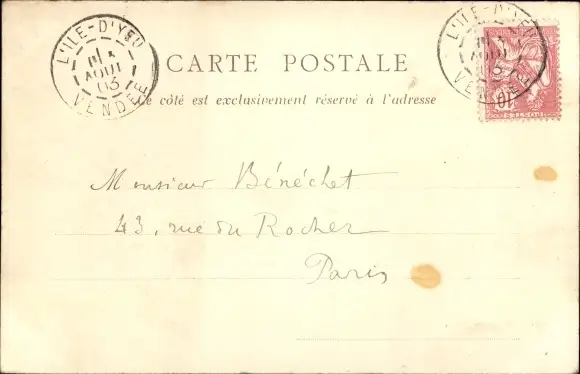 L'ILE-D'YEU
AOUT
03
VENDÉE
CARTE POSTALE
Ce côté est exclusivement réservé à l'adresse
L'ILE-D'YEU
AOUT
03
VENDÉE
10
POSTES
Monsieur Bénéchet
43, rue du Rocher
Paris